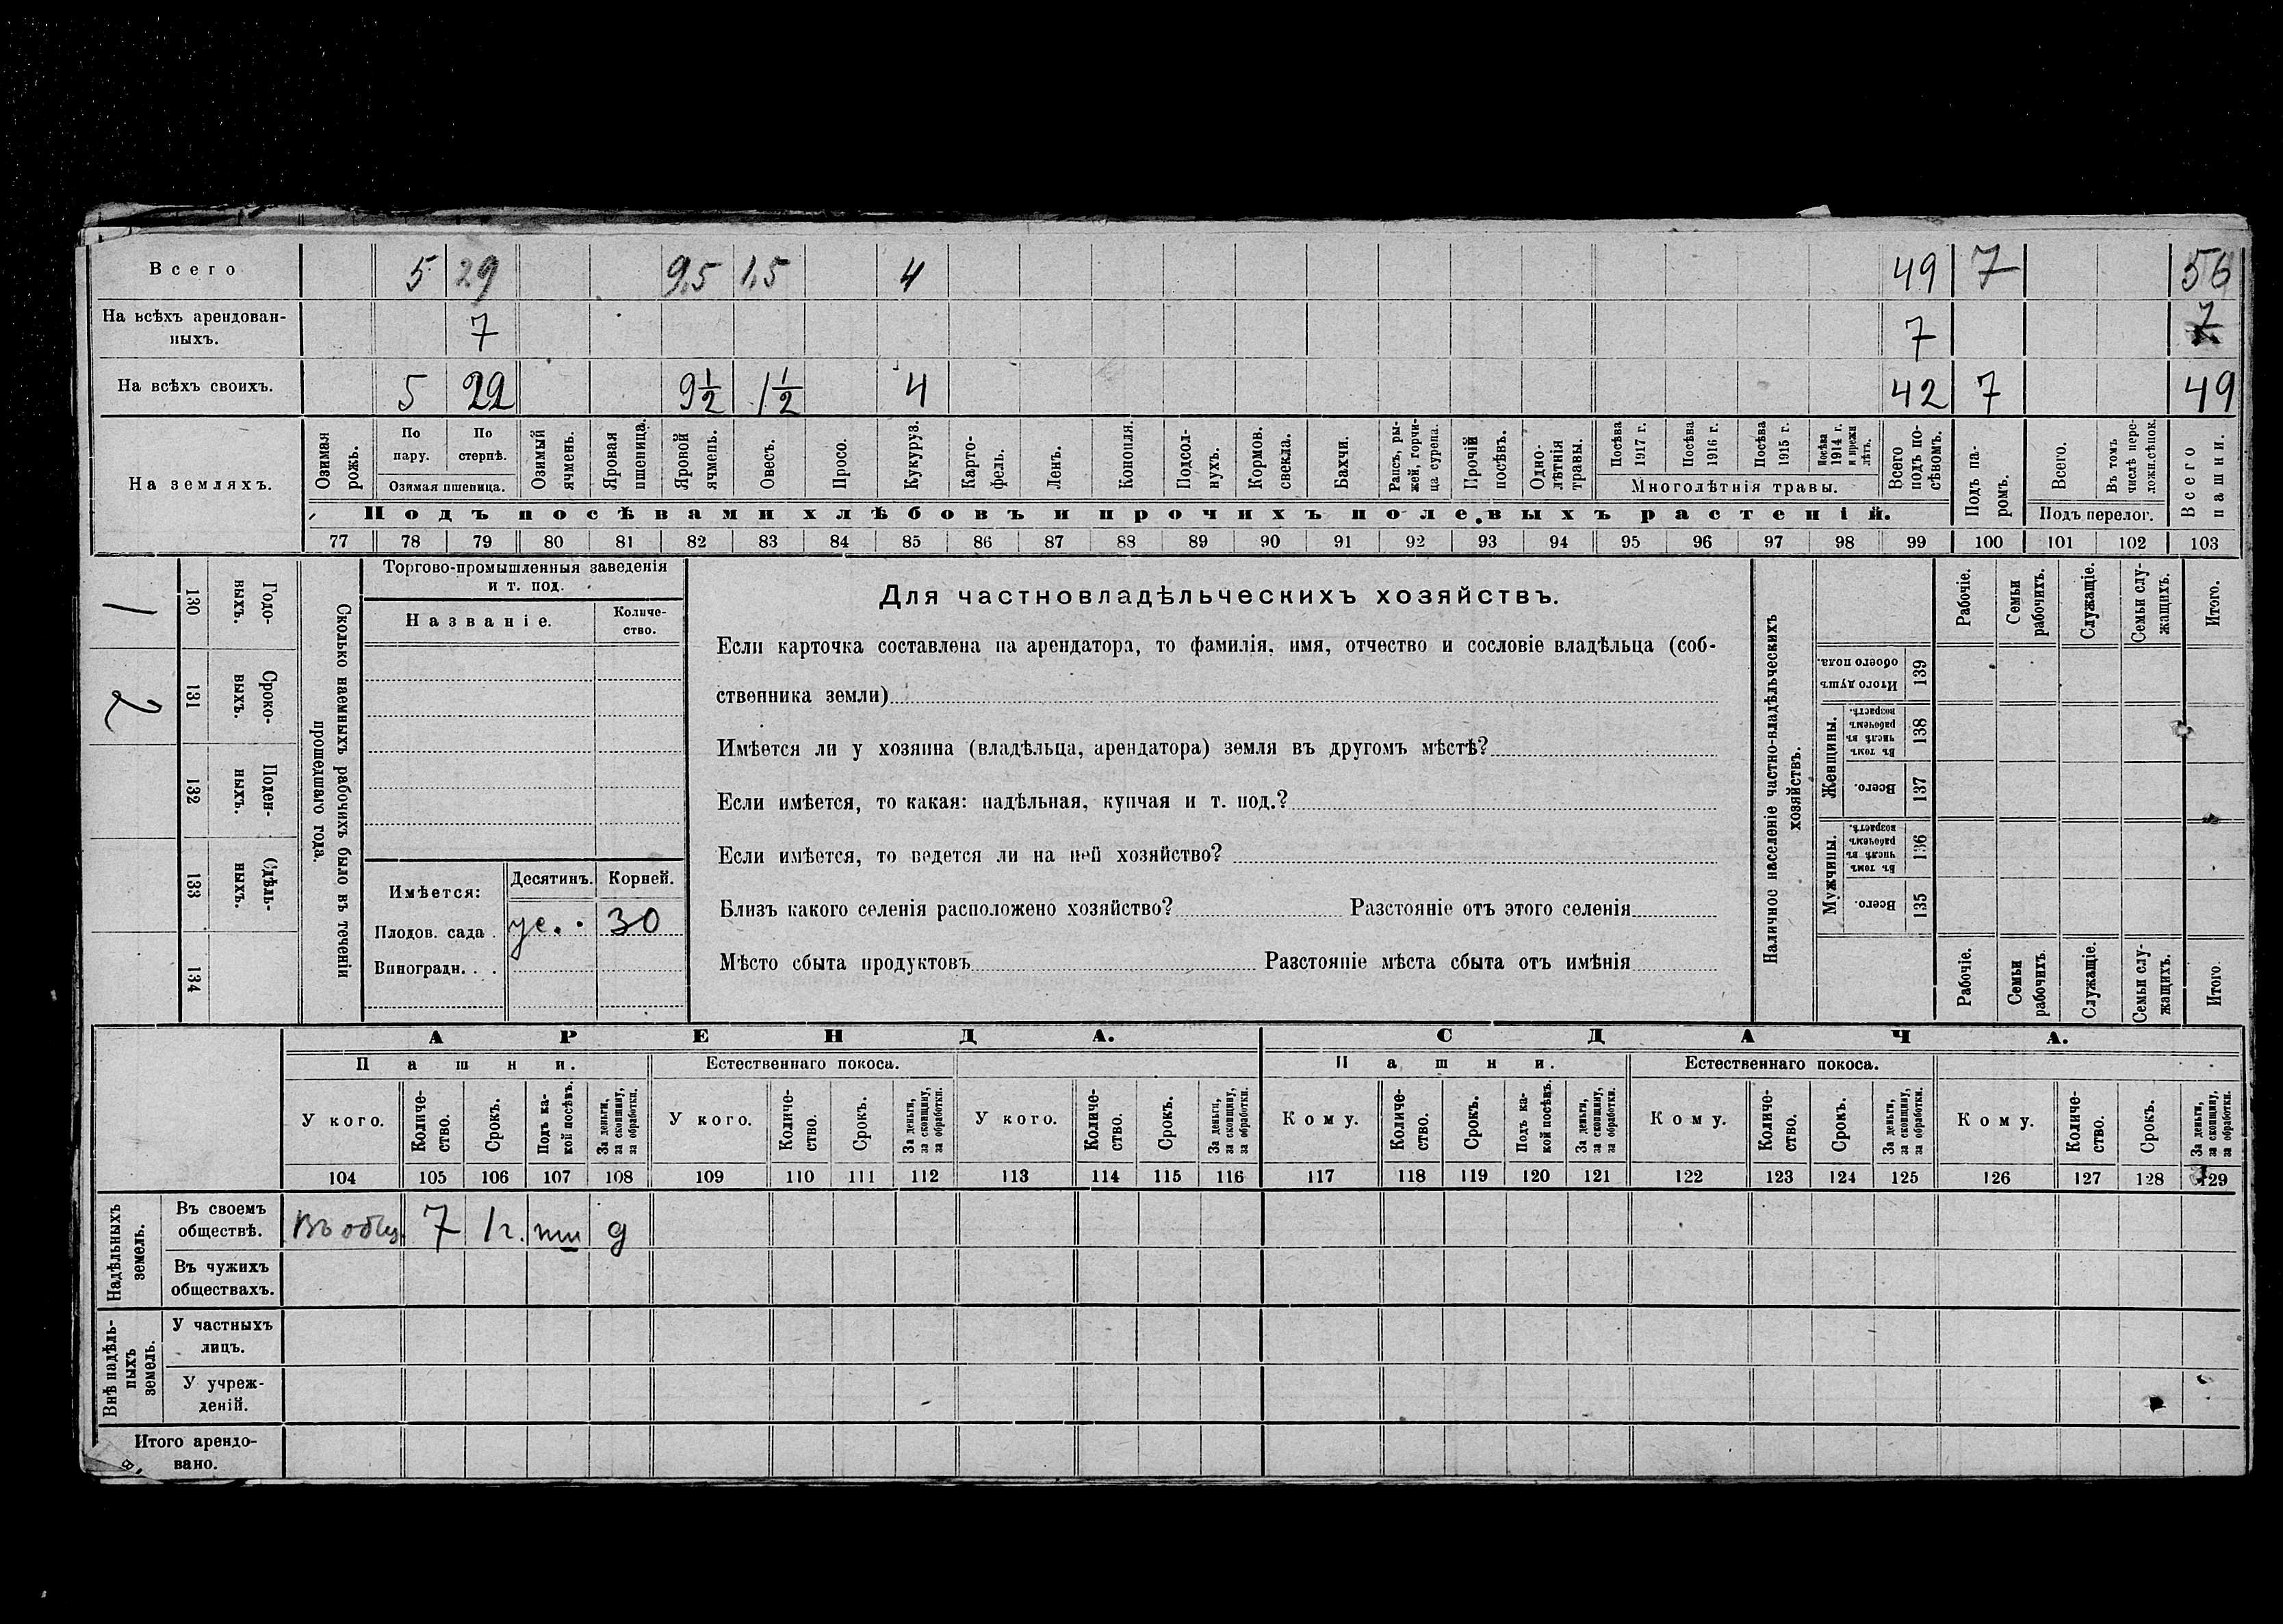 Всего 5 29 9,5 1,5 4 49 7 56
На всѣхъ арендован-
ныхъ. 7 7 7
На всѣхъ своихъ. 5 22 9½ 1½ 4 42 7 49
На земляхъ.
Озимая рожь.
По пару.
По стернѣ.
Озимая пшеница.
Озимый ячмень.
Яровая пшеница.
Яровой ячмень.
Овесъ.
Просо.
Кукуруз.
Карто-
фель.
Ленъ.
Конопля.
Подсол-
нухъ.
Кормов. свекла.
Бахчи.
Рапсъ, ры-
жей, горчи-
ца сурепа.
Прочій посѣвъ.
Одно-
лѣтнія травы.
Посѣва 1917 г.
Посѣва 1916 г.
Посѣва 1915 г.
Посѣва 1914 г. и прежн лѣтъ.
Многолѣтнія травы.
Всего подъ по-
сѣвомъ.
Подъ па-
ромъ.
Всего.
Въ томъ числѣ пере-
ложн. сѣнок.
Подъ перелог.
Всего пашни.
Подъ посѣвами хлѣбовъ и прочихъ полевыхъ растеній.
77 78 79 80 81 82 83 84 85 86 87 88 89 90 91 92 93 94 95 96 97 98 99 100 101 102 103
1 130 Годо-
выхъ.
2 131 Сроко-
выхъ.
132 Поден-
ныхъ.
133 Сдѣль-
ныхъ.
134
Сколько наемныхъ рабочихъ было въ теченіи
прошедшаго года.
Торгово-промышленныя заведенія
и т. под.
Названіе.
Количе-
ство.
Имѣется:
Десятинъ. Корней.
Плодов. сада . ус. 30
Виноградн. . .
Для частновладѣльческихъ хозяйствъ.
Если карточка составлена на арендатора, то фамилія, имя, отчество и сословіе владѣльца (соб-
ственника земли)
Имѣется ли у хозяина (владѣльца, арендатора) земля въ другомъ мѣстѣ?
Если имѣется, то какая: надѣльная, купчая и т. под.?
Если имѣется, то ведется ли на ней хозяйство?
Близъ какого селенія расположено хозяйство? Разстояніе отъ этого селенія
Мѣсто сбыта продуктовъ Разстояніе мѣста сбыта отъ имѣнія
Наличное населеніе частно-владѣльческихъ
хозяйствъ.
Рабочіе.
Семьи рабочихъ.
Служащіе.
Семьи слу-
жащихъ.
Итого.
Итого душъ обоего пола. 139
Женщины.
Въ томъ числѣ въ рабочемъ возрастѣ. 138
Всего. 137
Мужчины.
Въ томъ числѣ въ рабочемъ возрастѣ. 136
Всего. 135
Рабочіе.
Семьи рабочихъ.
Служащіе.
Семьи слу-
жащихъ.
Итого.
АРЕНДА. СДАЧА.
Пашни. Естественнаго покоса. Пашни. Естественнаго покоса.
У кого.
Количе-
ство.
Срокъ.
Подъ ка-
кой посѣвъ.
За деньги, за скопщину, за обработки.
У кого.
Количе-
ство.
Срокъ.
За деньги, за скопщину, за обработки.
У кого.
Количе-
ство.
Срокъ.
За деньги, за скопщину, за обработки.
Кому.
Количе-
ство.
Срокъ.
Подъ ка-
кой посѣвъ.
За деньги, за скопщину, за обработки.
Кому.
Количе-
ство.
Срокъ.
За деньги, за скопщину, за обработки.
Кому.
Количе-
ство.
Срокъ.
За деньги, за скопщину, за обработки.
104 105 106 107 108 109 110 111 112 113 114 115 116 117 118 119 120 121 122 123 124 125 126 127 128 129
Надѣльныхъ земель.
Въ своемъ
обществѣ. Въ общ. 7 1 г. пш д
Въ чужихъ
обществахъ.
Внѣ надѣль-
ныхъ земель.
У частныхъ
лицъ.
У учреж-
деній.
Итого арендо-
вано.